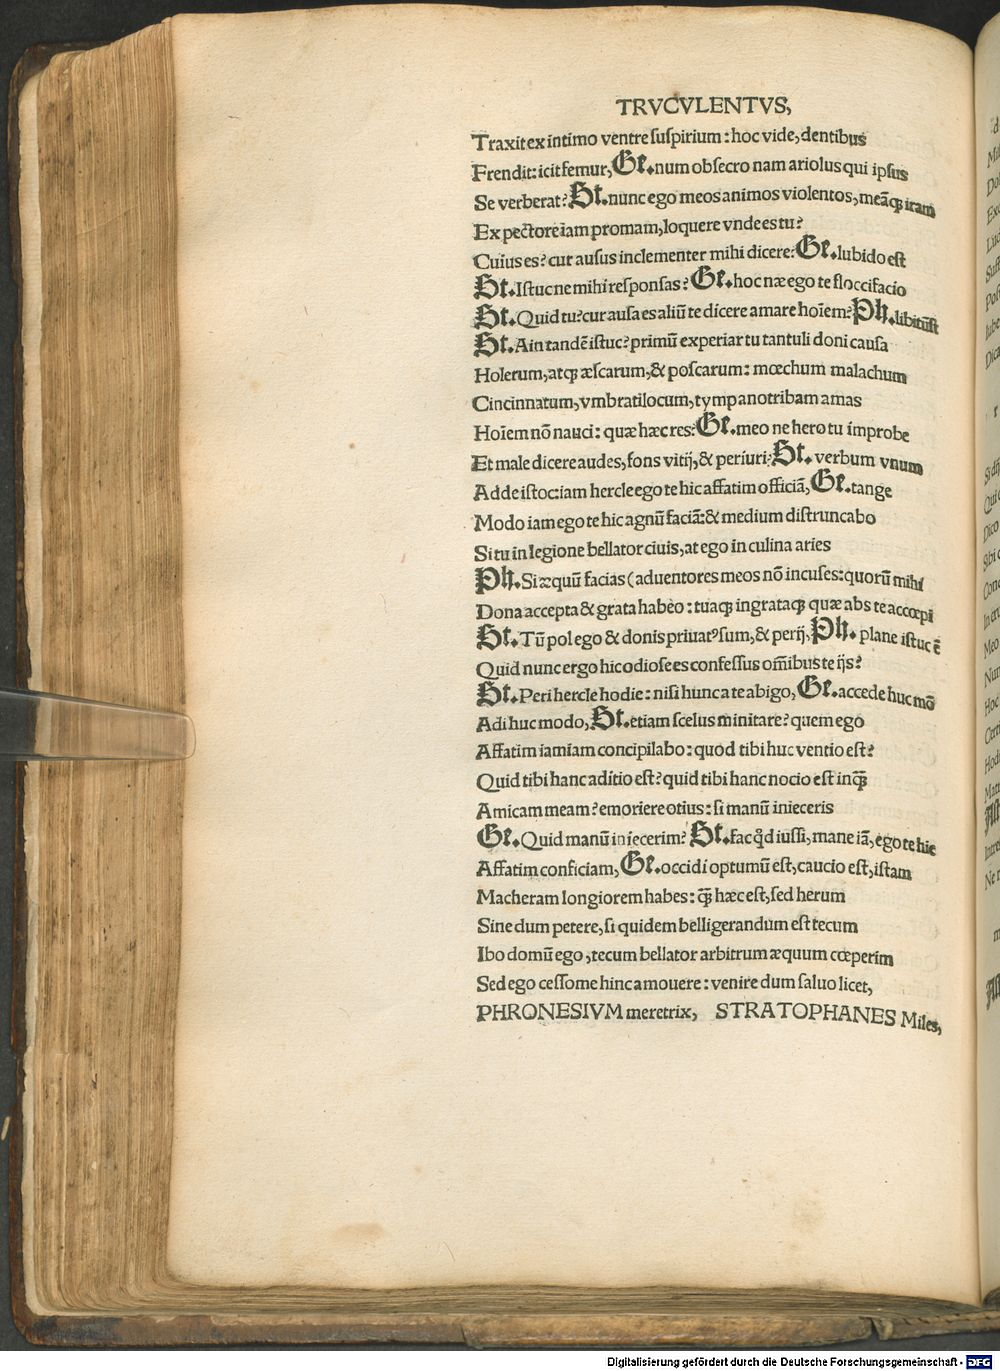 TRVCVLENTVS,
Traxit ex intimo ventre suspirium: hoc vide, dentibus
Frendit: icit femur, Ge. num obsecro nam ariolus qui ipsus
Se verberat? St. nunc ego meos animos violentos, meāq; iram
Ex pectore iam promam, loquere vnde es tu?
Cuius es? cur ausus inclementer mihi dicere? Ge. lubido est
St. Istucne mihi responsas? Ge. hoc næ ego te floccifacio
St. Quid tu? cur ausa es aliū te dicere amare hoīem? Ph. libitūst
St. Ain tandē istuc? primū experiar tu tantuli doni causa
Holerum, atq; æscarum, & poscarum: mœchum malachum
Cincinnatum, vmbratilocum, tympanotribam amas
Hoīem nō nauci: quæ hæc res? Ge. meo ne hero tu improbe
Et male dicere audes, fons vitij, & periuri? St. verbum vnum
Adde istoc: iam hercle ego te hic affatim officiā, Ge. tange
Modo iam ego te hic agnū faciā: & medium distruncabo
Si tu in legione bellator ciuis, at ego in culina aries
Ph. Si æquū facias (aduentores meos nō incuses: quorū mihi
Dona accepta & grata habeo: tuaq; ingrataq; quæ abs te accœpi
St. Tū pol ego & donis priuatꝰ sum, & perij, Ph. plane istuc ē
Quid nunc ergo hic odiose es confessus oībus te ijs?
St. Peri hercle hodie: nisi hunc a te abigo, Ge. accede huc mō
Adi huc modo, St. etiam scelus minitare? quem ego
Affatim iamiam concipilabo: quod tibi huc ventio est?
Quid tibi hanc aditio est? quid tibi hanc nocio est inq̄
Amicam meam? emoriere otius: si manū inieceris
Ge. Quid manū iniecerim? St. fac qd iussi, mane iā, ego te hic
Affatim conficiam, Ge. occidi optumū est, caucio est, istam
Macheram longiorem habes: q̄ hæc est, sed herum
Sine dum petere, si quidem belligerandum est tecum
Ibo domū ego, tecum bellator arbitrum æquum cœperim
Sed ego cesso me hinc amouere: venire dum saluo licet,
PHRONESIVM meretrix, STRATOPHANES Miles,
Digitalisierung gefördert durch die Deutsche Forschungsgemeinschaft - DFG